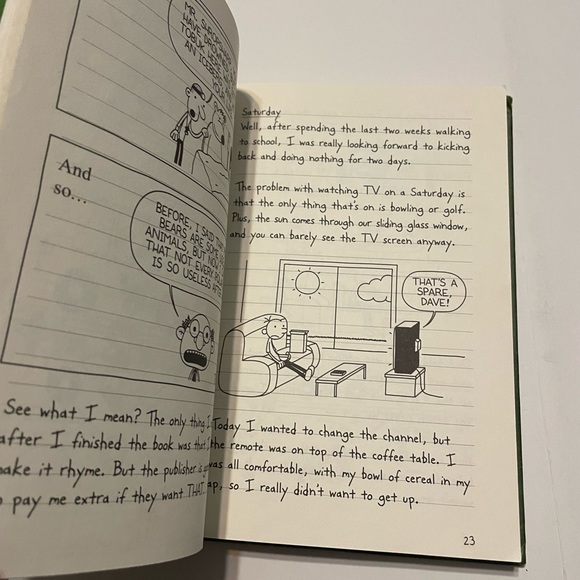 MR. SHROPSHIRE
HAVE
TOBUK
AN ICEBERG
And
so...
BEFORE, I SAID THAT
BEARS ARE SUCH
ANIMALS, BUT NOW
THAT NOT EVERY
IS SO USELESS AFTER
See what I mean? The only thing I
after I finished the book was that
make it rhyme. But the publisher
pay me extra if they want THAT.
Saturday
Well, after spending the last two weeks walking
to school, I was really looking forward to kicking
back and doing nothing for two days.
The problem with watching TV on a Saturday is
that the only thing that's on is bowling or golf.
Plus, the sun comes through our sliding glass window,
and you can barely see the TV screen anyway.
THAT'S A
SPARE,
DAVE!
Today I wanted to change the channel, but
the remote was on top of the coffee table. I
was all comfortable, with my bowl of cereal in my
lap, so I really didn't want to get up.
23